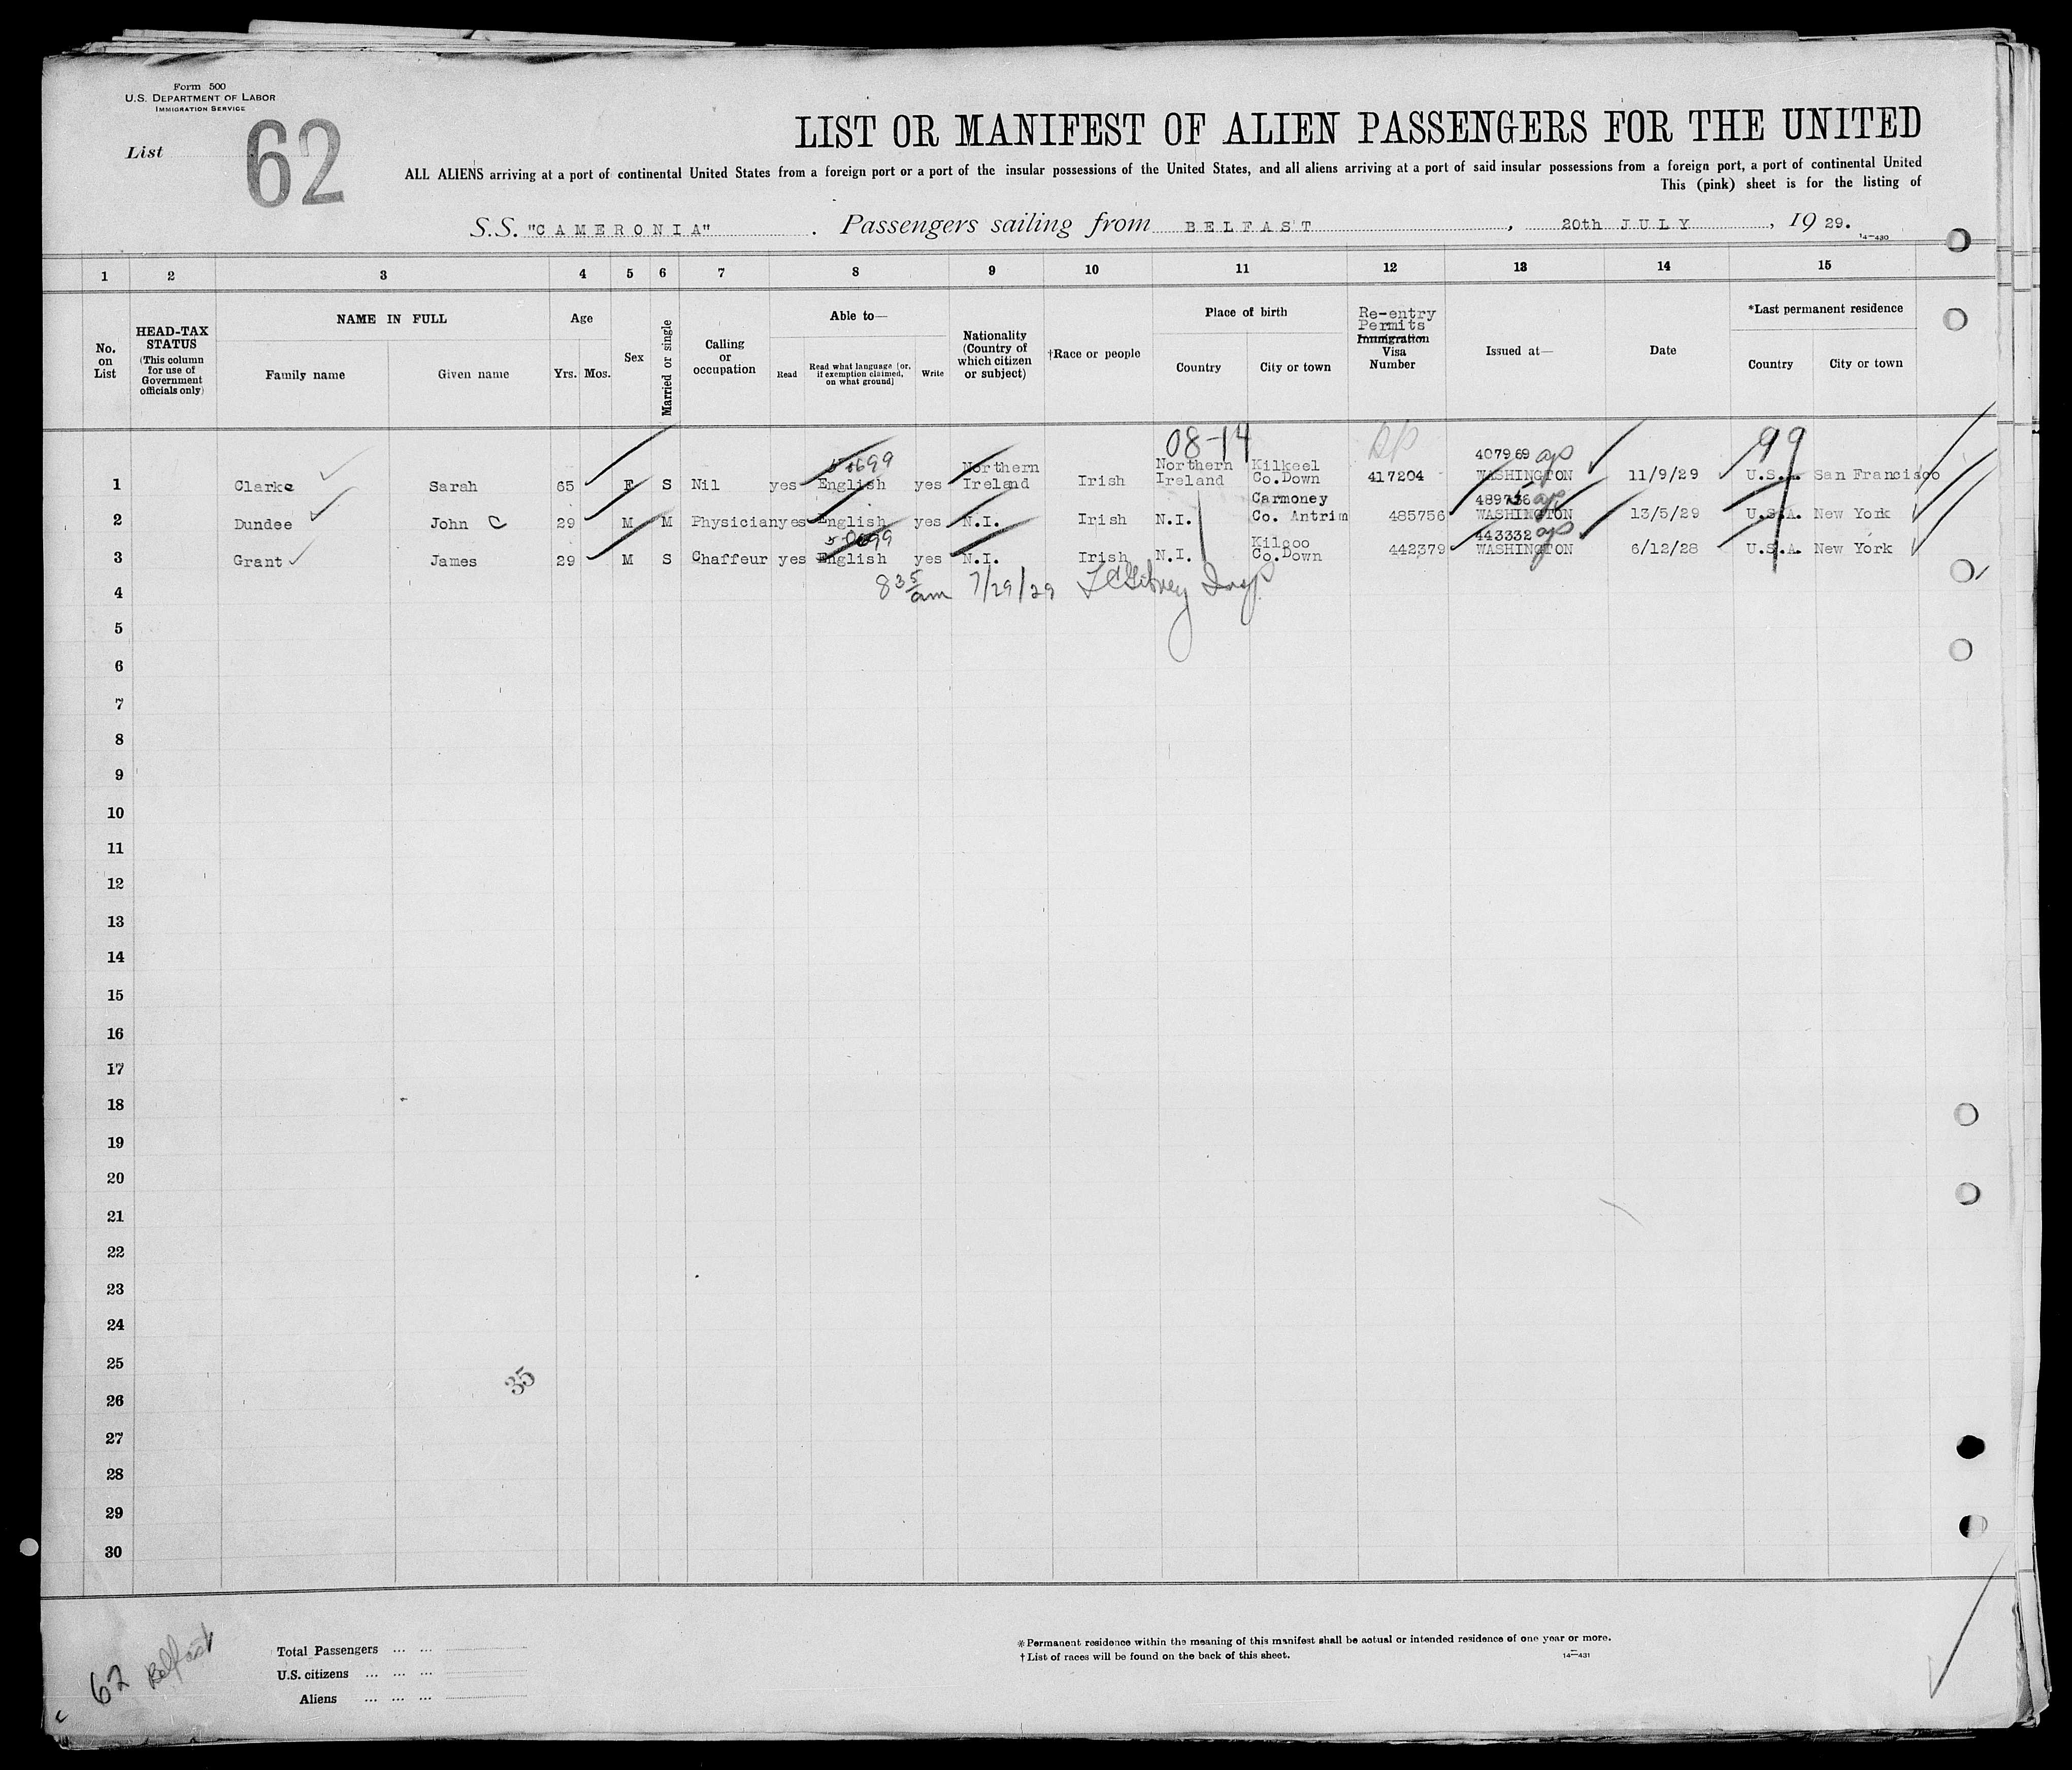 Form 500
U.S. DEPARTMENT OF LABOR
IMMIGRATION SERVICE
List 62
LIST OR MANIFEST OF ALIEN PASSENGERS FOR THE UNITED
ALL ALIENS arriving at a port of continental United States from a foreign port or a port of the insular possessions of the United States, and all aliens arriving at a port of said insular possessions from a foreign port, a port of continental United
This (pink) sheet is for the listing of
S.S. "CAMERONIA" . Passengers sailing from BELFAST , 20th JULY , 19 29.
14—430
1 2 3 4 5 6 7 8 9 10 11 12 13 14 15
No. on List
HEAD-TAX STATUS
(This column for use of Government officials only)
NAME IN FULL
Family name Given name
Age
Yrs. Mos.
Sex
Married or single
Calling or occupation
Able to—
Read Read what language [or, if exemption claimed, on what ground] Write
Nationality (Country of which citizen or subject)
†Race or people
Place of birth
Country City or town
Re-entry Permits
Immigration Visa Number
Issued at—
Date
*Last permanent residence
Country City or town
08-14 99
1 Clarke Sarah 65 F S Nil yes English yes Northern Ireland Irish Northern Ireland Kilkeel Co.Down 417204 407969 WASHINGTON 11/9/29 U.S.A. San Francisco
2 Dundee John C 29 M M Physician yes English yes N.I. Irish N.I. Carmoney Co. Antrim 485756 WASHINGTON 13/5/29 U.S.A. New York
3 Grant James 29 M S Chaffeur yes English yes N.I. Irish N.I. Kilcoo Co.Down 442379 443332 WASHINGTON 6/12/28 U.S.A. New York
4 8 35 am 7/29/29 Insp
5
6
7
8
9
10
11
12
13
14
15
16
17
18
19
20
21
22
23
24
25
35
26
27
28
29
30
62 Belfast
Total Passengers ... ...
U.S. citizens ... ... ...
Aliens ... ... ...
*Permanent residence within the meaning of this manifest shall be actual or intended residence of one year or more.
†List of races will be found on the back of this sheet.
14—431